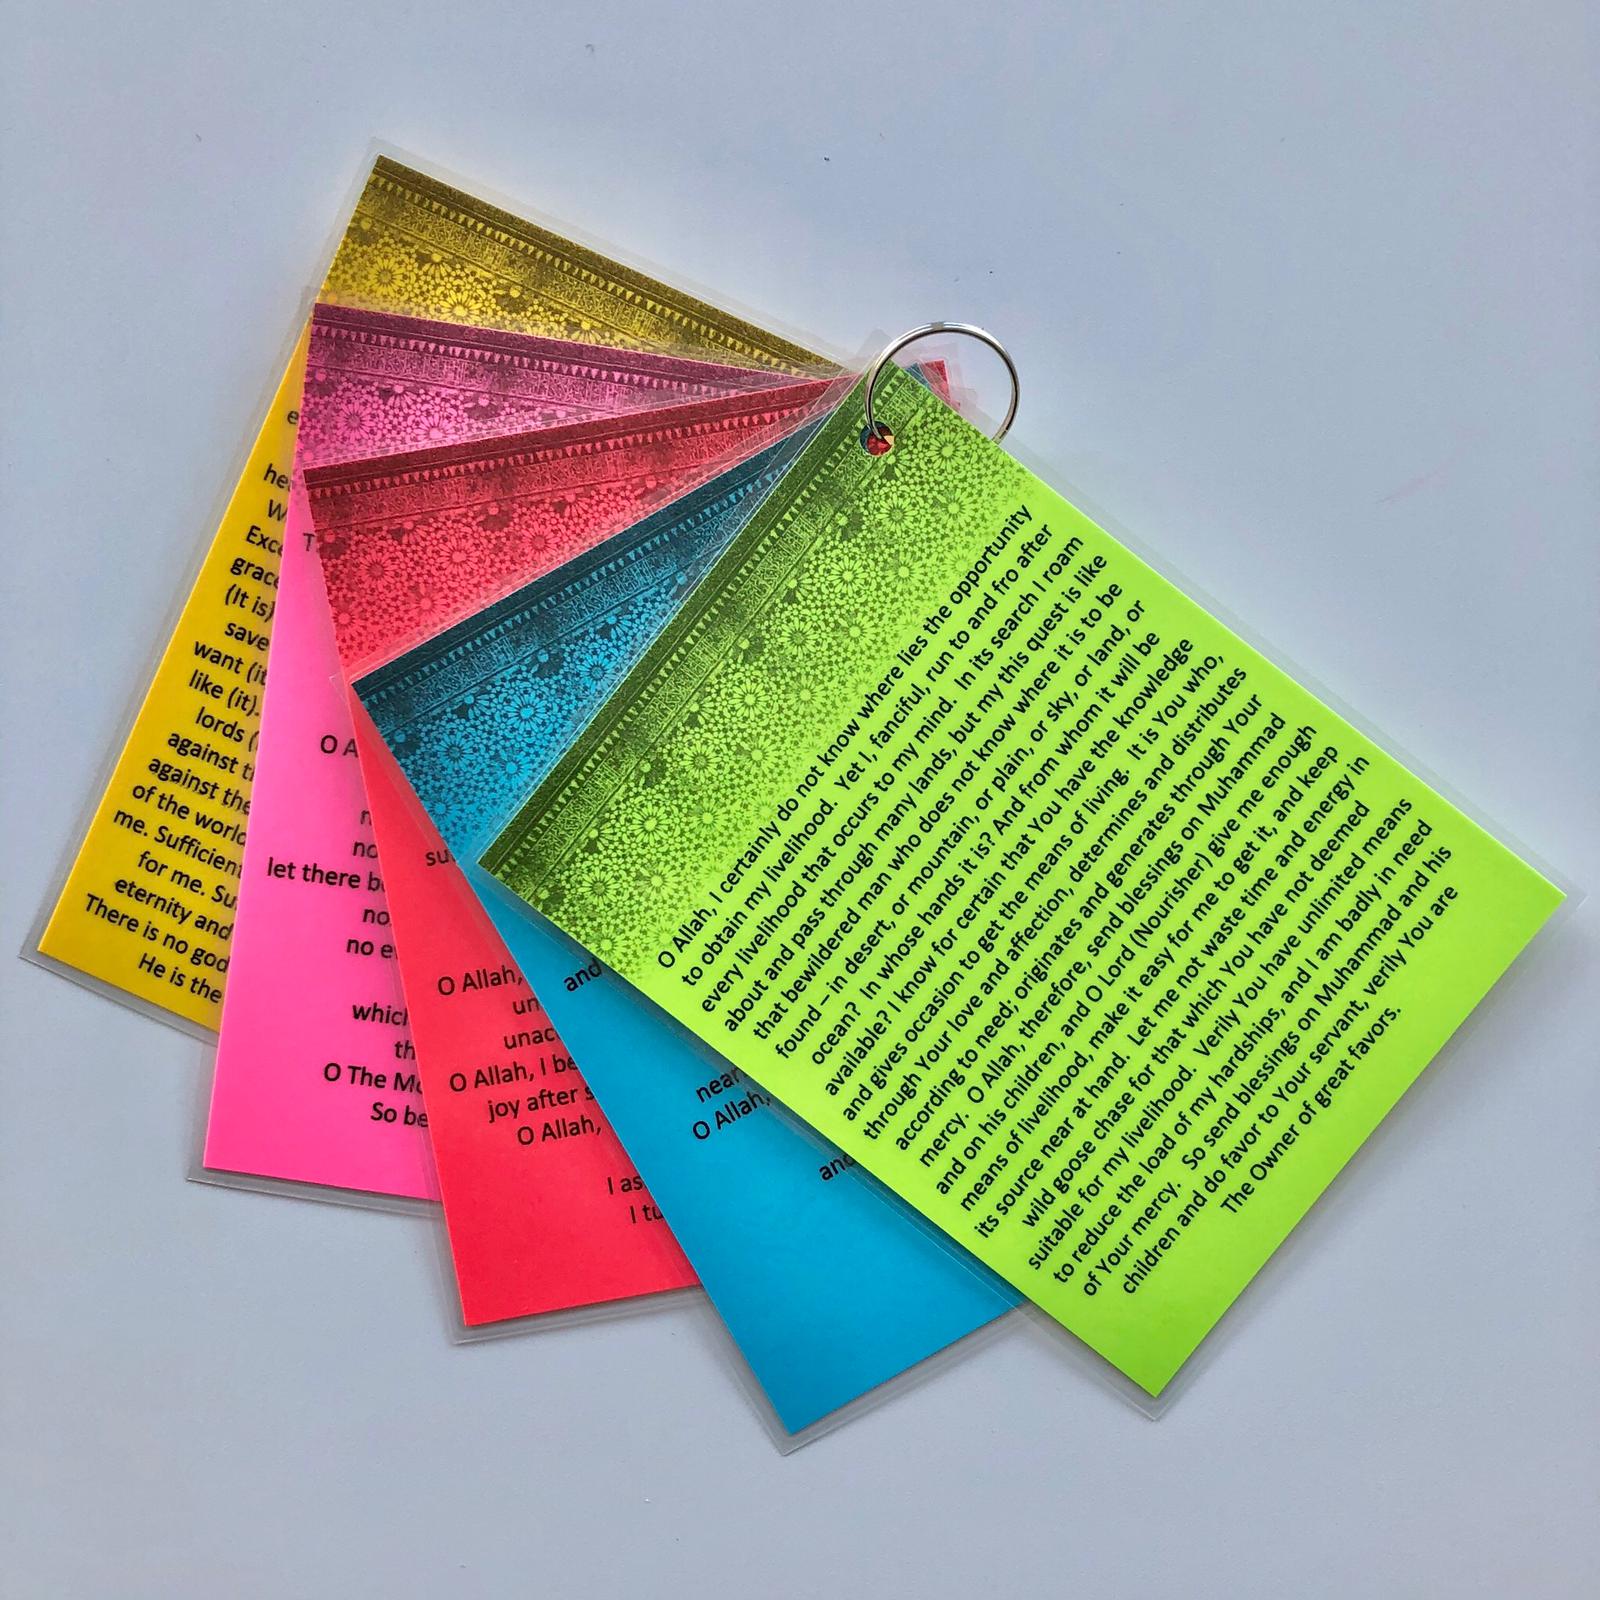 O Allah, I certainly do not know where lies the opportunity
to obtain my livelihood. Yet I, fanciful, run to and fro after
every livelihood that occurs to my mind. In its search I roam
about and pass through many lands, but my this quest is like
that bewildered man who does not know where it is to be
found – in desert, or mountain, or plain, or sky, or land, or
ocean? In whose hands it is? And from whom it will be
available? I know for certain that You have the knowledge
and gives occasion to get the means of living. It is You who,
through Your love and affection, determines and distributes
according to need; originates and generates through Your
mercy. O Allah, therefore, send blessings on Muhammad
and on his children, and O Lord (Nourisher) give me enough
means of livelihood, make it easy for me to get it, and keep
its source near at hand. Let me not waste time and energy in
wild goose chase for that which You have not deemed
suitable for my livelihood. Verily You have unlimited means
to reduce the load of my hardships, and I am badly in need
of Your mercy. So send blessings on Muhammad and his
children and do favor to Your servant, verily You are
The Owner of great favors.
and
near
O Allah,
and
su
O Allah,
un
unac
O Allah, I be
joy after s
O Allah,
I as
I tu
T
O A
n
no
let there b
no
no e
which
th
O The Mo
So be
e
he
W
Exce
grace
(It is)
save
want (it
like (it).
lords (
against th
against the
of the world
me. Sufficient
for me. Su
eternity and
There is no god
He is the